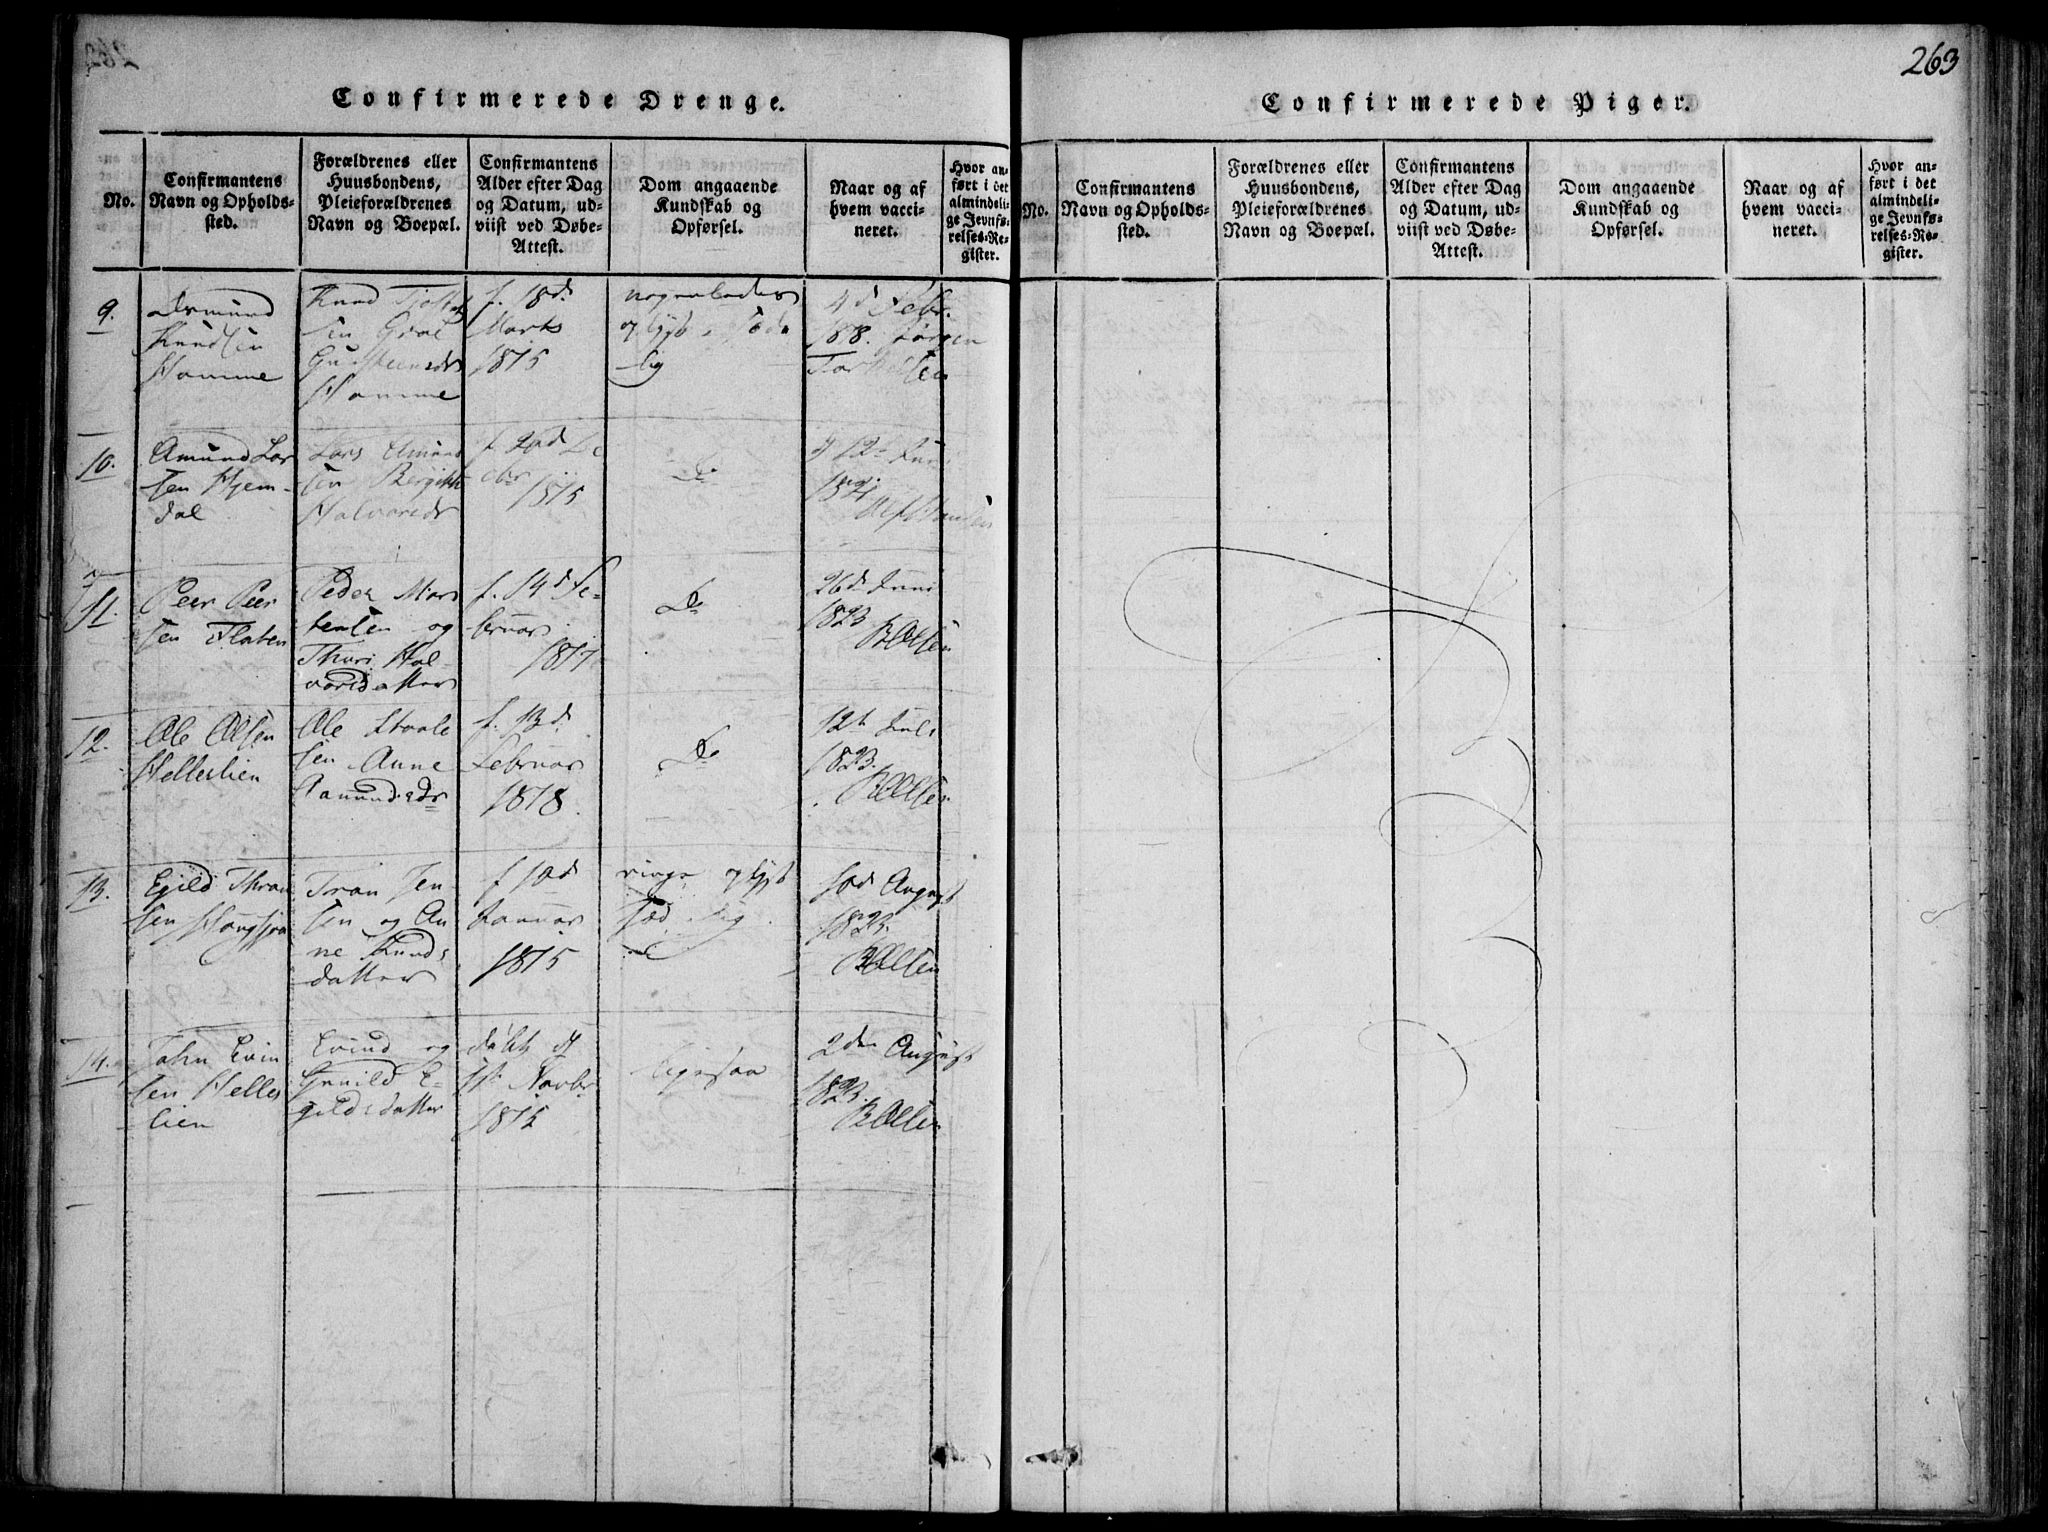 263
Confirmerede Drenge.
No.
Confirmantens
Navn og Opholds-
sted.
Forældrenes eller
Huusbondens,
Pleieforældrenes
Navn og Boepæl.
Confirmantens
Alder efter Dag
og Datum, ud-
viist ved Døbe-
Attest.
Dom angaaende
Kundskab og
Opførsel.
Naar og af
hvem vacci-
neret.
Hvor an-
ført i det
almindeli-
ge Jevnfø-
relses-Re-
gister.
9.
Knudsen
Homme
Knud
sen
Homme
f. 18d.
Marts
1815
4d Febr.
1818. Jørgen
10.
Amund Lar
sen Hjem-
dal
Lars Amund
sen
Halvorsdr
f 20d De
cbr
1815
do
11.
Peer Peer
sen Flaten
Peder Mor
tensen og
Thuri Hal-
vorsdatter
f. 14d Fe-
bruar
1817
do
26d Juni
1823
B Olsen
12.
Ole Olsen
Helleslien
Ole Staale
sen Anne
Aamundsdr
f. 13d.
Februar
1818.
do
12t Juli
1823.
B Olsen
13.
Egild Thron
sen
Tron Jen-
sen og An-
ne Knuds
datter
f 10d
Januar
1815
ringe
10d August
1823.
B Olsen
14.
John Evin
sen Helles
lien
Evind og
Gunild E-
gildsdatter
døbt d
1st Novbr
1815
ligesaa
2den August
1823.
B Olsen
Confirmerede Piger.
No.
Confirmantens
Navn og Opholds-
sted.
Forældrenes eller
Huusbondens,
Pleieforældrenes
Navn og Boepæl.
Confirmantens
Alder efter Dag
og Datum, ud-
viist ved Døbe-
Attest.
Dom angaaende
Kundskab og
Opførsel.
Naar og af
hvem vacci-
neret.
Hvor an-
ført i det
almindeli-
ge Jevnfø-
relses-Re-
gister.